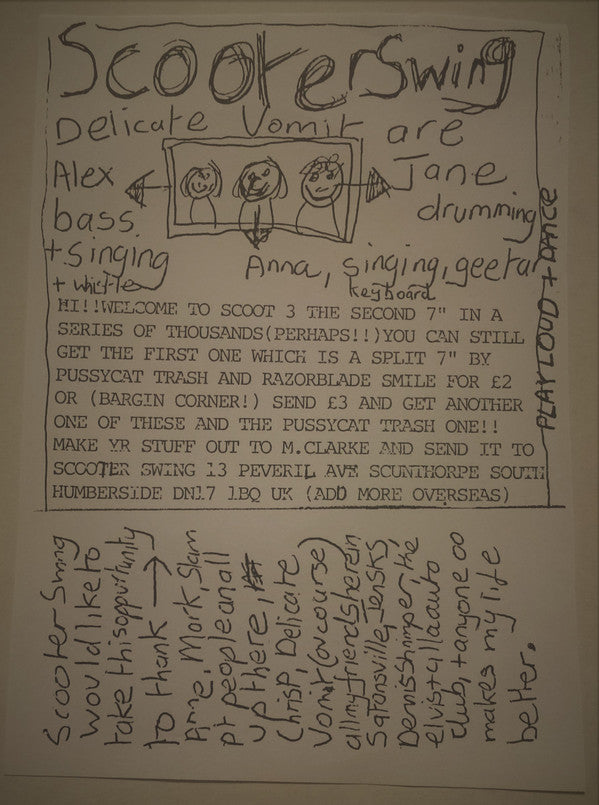 Scooter Swing
Delicate Vomit are
Alex
bass
+ singing
+ whistle
Jane
drumming
Anna, singing, geetar
keyboard
PLAY LOUD + DANCE
HI!!WELCOME TO SCOOT 3 THE SECOND 7" IN A
SERIES OF THOUSANDS(PERHAPS!!)YOU CAN STILL
GET THE FIRST ONE WHICH IS A SPLIT 7" BY
PUSSYCAT TRASH AND RAZORBLADE SMILE FOR £2
OR (BARGIN CORNER!) SEND £3 AND GET ANOTHER
ONE OF THESE AND THE PUSSYCAT TRASH ONE!!
MAKE YR STUFF OUT TO M.CLARKE AND SEND IT TO
SCOOTER SWING 13 PEVERIL AVE SCUNTHORPE SOUTH
HUMBERSIDE DN17 1BQ UK (ADD MORE OVERSEAS)
Scooter Swing
would like to
take this oppurtunity
to thank →
Anne, Mark, Slam
pt people an all
up there,
Chris P, Delicate
Vomit (ov course)
all my friends here in
Satansville,
Denis
elvis
club, + anyone oo
makes my life
better.